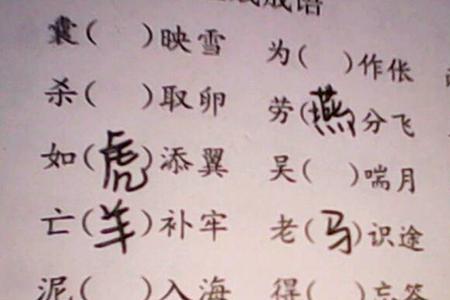 成语
囊( )映雪 为( )作伥
杀( )取卵 劳(燕)分飞
如(虎)添翼 吴( )喘月
亡(羊)补牢 老(马)识途
泥( )入海 得( )忘筌